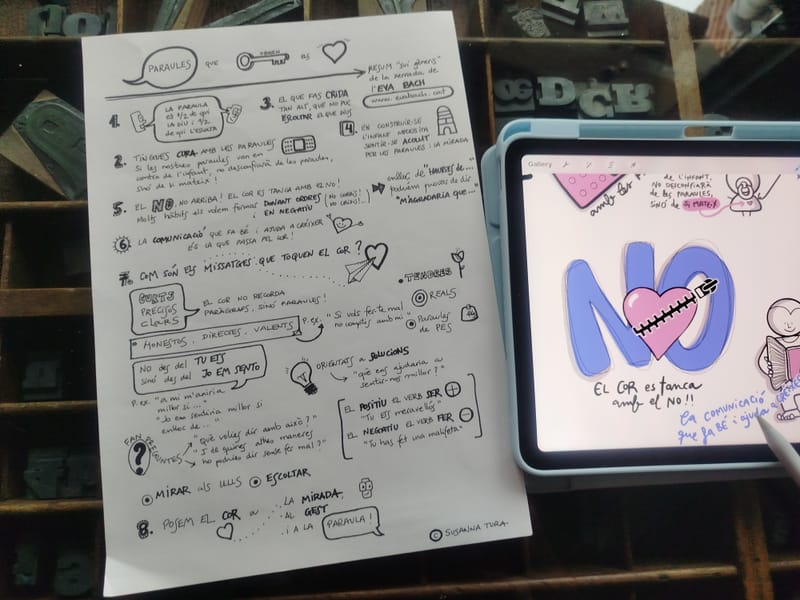 PARAULES QUE OBREN els
RESUM "sui gèneris"
de la xerrada de
l'EVA BACH
www.evabach.cat
1.
LA PARAULA
ÉS 1/2 de qui
LA DIU i 1/2
de qui l'ESCOLTA
3. EL QUE FAS CRIDA
TAN ALT, QUE NO PUC
ESCOLTAR EL QUE DIUS
4. EN CONSTRUIR-SE
L'INFANT NECESSITA
SENTIR-SE ACOLLIT
PER LES PARAULES i LA MIRADA
2. TINGUES CURA AMB LES PARAULES
Si les nostres paraules van en
contra de l'infant, no desconfiarà de les paraules,
sinó de si mateix!
5. EL NO NO ARRIBA! EL COR ES TANCA AMB EL NO!
Molts hàbits els volem formar DONANT ORDRES
i EN NEGATIU
(NO CORRIS!)
(NO CRIDIS!)
enlloc de "HAURIES DE..."
podríem provar de dir
"M'AGRADARIA QUE..."
6. LA COMUNICACIÓ QUE FA BÉ i AJUDA A CRÉIXER
ÉS LA QUE PASSA PEL COR!
7. COM SÓN ELS MISSATGES QUE TOQUEN EL COR?
CURTS
PRECISOS
CLARS
EL COR NO RECORDA
PARÀGRAFS, SINÓ PARAULES!
• TENDRES
REALS
Paraules
de PES
HONESTOS, DIRECTES, VALENTS
P. ex. "Si vols fer-te mal
no comptis amb mi"
NO des del TU ETS
sinó des del JO EM SENTO
P. ex. "a mi m'aniria
millor si..."
"Jo em sentiria millor si
enlloc de..."
ORIENTATS a SOLUCIONS
"què ens ajudaria a
sentir-nos millor?"
EL POSITIU EL VERB SER +
"Tu ets meravellós"
EL NEGATIU EL VERB FER -
"Tu has fet una malifeta"
FAN PREGUNTES
?
"què volies dir amb això?"
"I de quines altres maneres
ho podries dir sense fer mal?"
MIRAR als ULLS ESCOLTAR
8. POSEM EL COR a
LA MIRADA,
AL GEST
i A LA PARAULA!
© SUSANNA TURA.
Gallery
amb les
DE L'INFANT,
NO DESCONFIARÀ
DE LES PARAULES,
SINÓ DE SI MATEIX
NO
EL COR es tanca
amb el NO!!
La COMUNICACIÓ
que fa BÉ i ajuda a CRÉIXER